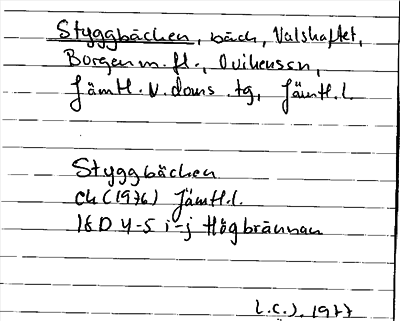 Styggbäcken, bäck, Valshaftet,
Borgen m. fl., Ovikenssn,
Jämtl. V. doms. tg, Jämtl. l.
Styggbäcken
ek (1976) Jämtl. l.
18D 4-5 i-j Högbrännan
L.C.J. 1977